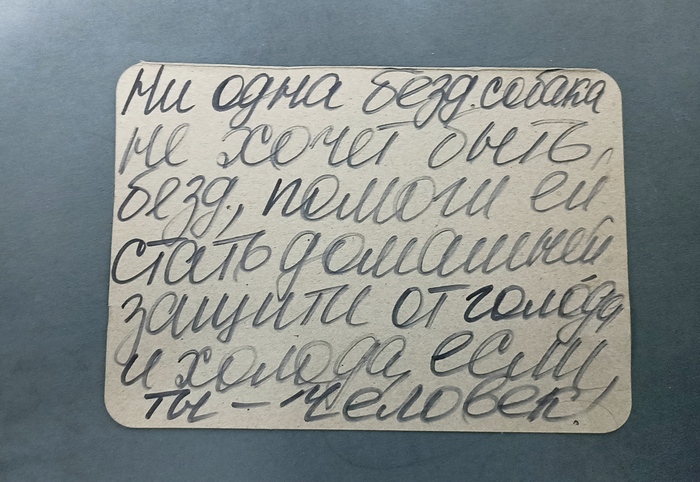 Ни одна безд. собака
не хочет быть,
безд., помоги ей
стать домашней
защити от голода
и холода, если
ты – человек!